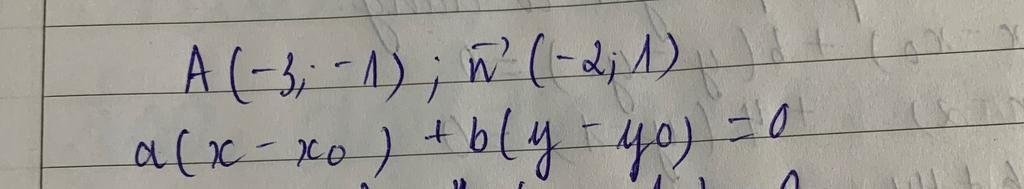 A(-3; -1); n⃗(-2; 1)
a(x - x0) + b(y - y0) = 0